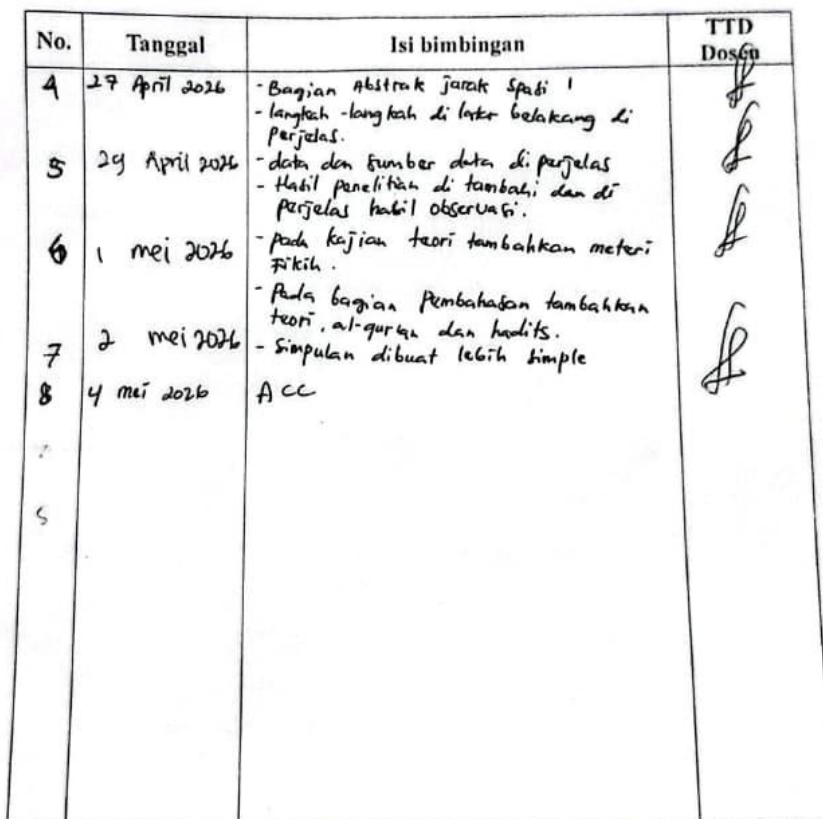 No. Tanggal Isi bimbingan TTD Dosen
4 27 April 2026 - Bagian Abstrak jarak spasi 1
- langkah-langkah di latar belakang di
perjelas.
5 29 April 2026 - data dan sumber data di perjelas
- Hasil penelitian di tambahi dan di
perjelas hasil observasi.
6 1 mei 2026 - pada kajian teori tambahkan materi
Fikih.
- Pada bagian Pembahasan tambahkan
teori, al-qur'an dan hadits.
7 2 mei 2026 - Simpulan dibuat lebih simple
8 4 mei 2026 ACC